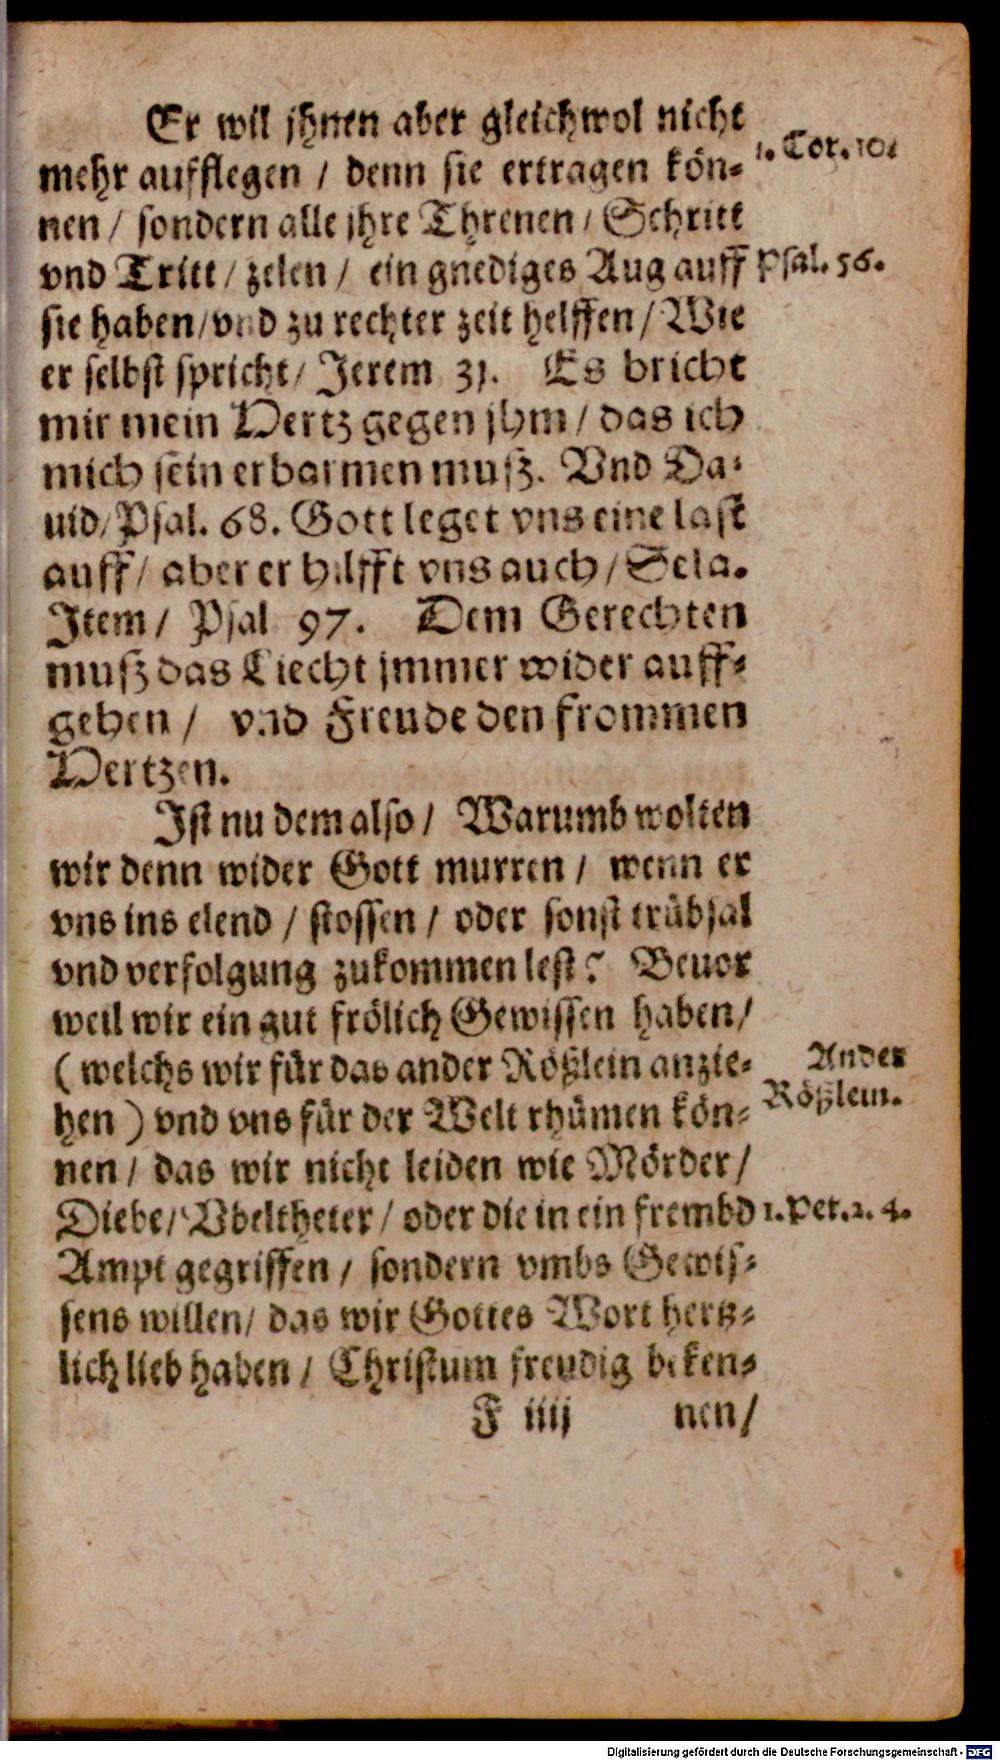 Er wil jhnen aber gleichwol nicht
mehr aufflegen / denn sie ertragen kön-
1. Cor. 10.
nen / sondern alle jhre Threnen / Schritt
vnd Tritt / zelen / ein gnediges Aug auff
Psal. 56.
sie haben / vnd zu rechter zeit helffen / Wie
er selbst spricht / Jerem 31. Es bricht
mir mein Hertz gegen jhm / das ich
mich sein erbarmen muß. Vnd Da-
uid / Psal. 68. Gott leget vns eine last
auff / aber er hilfft vns auch / Sela.
Item / Psal 97. Dem Gerechten
muß das Liecht jmmer wider auff-
gehen / vnd Freude den frommen
Hertzen.
Ist nu dem also / Warumb wolten
wir denn wider Gott murren / wenn er
vns ins elend / stossen / oder sonst trübsal
vnd verfolgung zukommen lest? Beuor
weil wir ein gut frölich Gewissen haben /
( welchs wir für das ander Rößlein anzie-
Ander
Rößlein.
hen ) vnd vns für der Welt rhümen kön-
nen / das wir nicht leiden wie Mörder /
Diebe / Vbeltheter / oder die in ein frembd
1. Pet. 2. 4.
Ampt gegriffen / sondern vmbs Gewis-
sens willen / das wir Gottes Wort hertz-
lich lieb haben / Christum freudig beken-
F iiij nen /
Digitalisierung gefördert durch die Deutsche Forschungsgemeinschaft - DFG